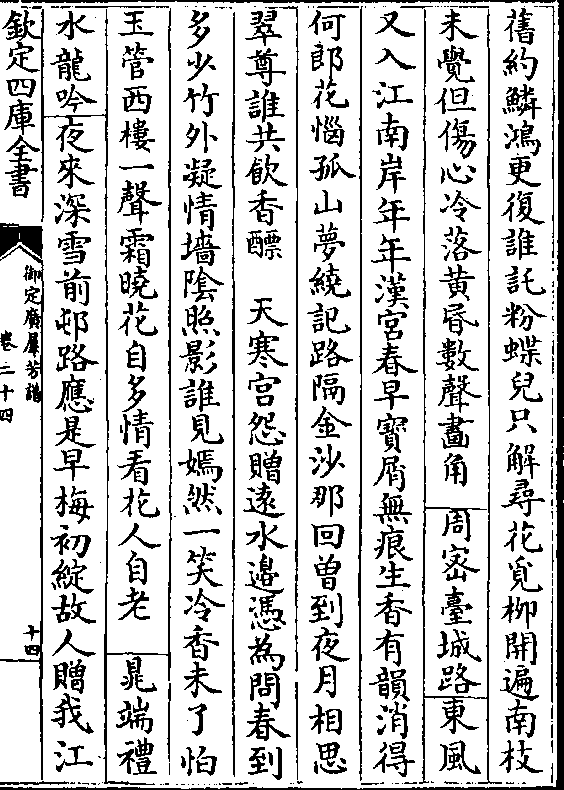 舊約鱗鴻更復誰託粉蝶兒只解尋花覓柳開遍南枝
未覺但傷心冷落黃昏數聲畫角　周密臺城路東風
又入江南岸年年漢宮春早寶屑無痕生香有韻消得
何郎花惱孤山夢繞記路隔金沙那回曾到夜月相思
翠尊誰共飲香醥　天寒宮怨贈遠水邊憑為問春到
多少竹外凝情墻陰照影誰見嫣然一笑冷香未了怕
玉管西樓一聲霜曉花自多情看花人自老　晁端禮
水龍吟夜來深雪前邨路應是早梅初綻故人贈我江
欽定四庫全書
御定廣羣芳譜
卷二十四
十四